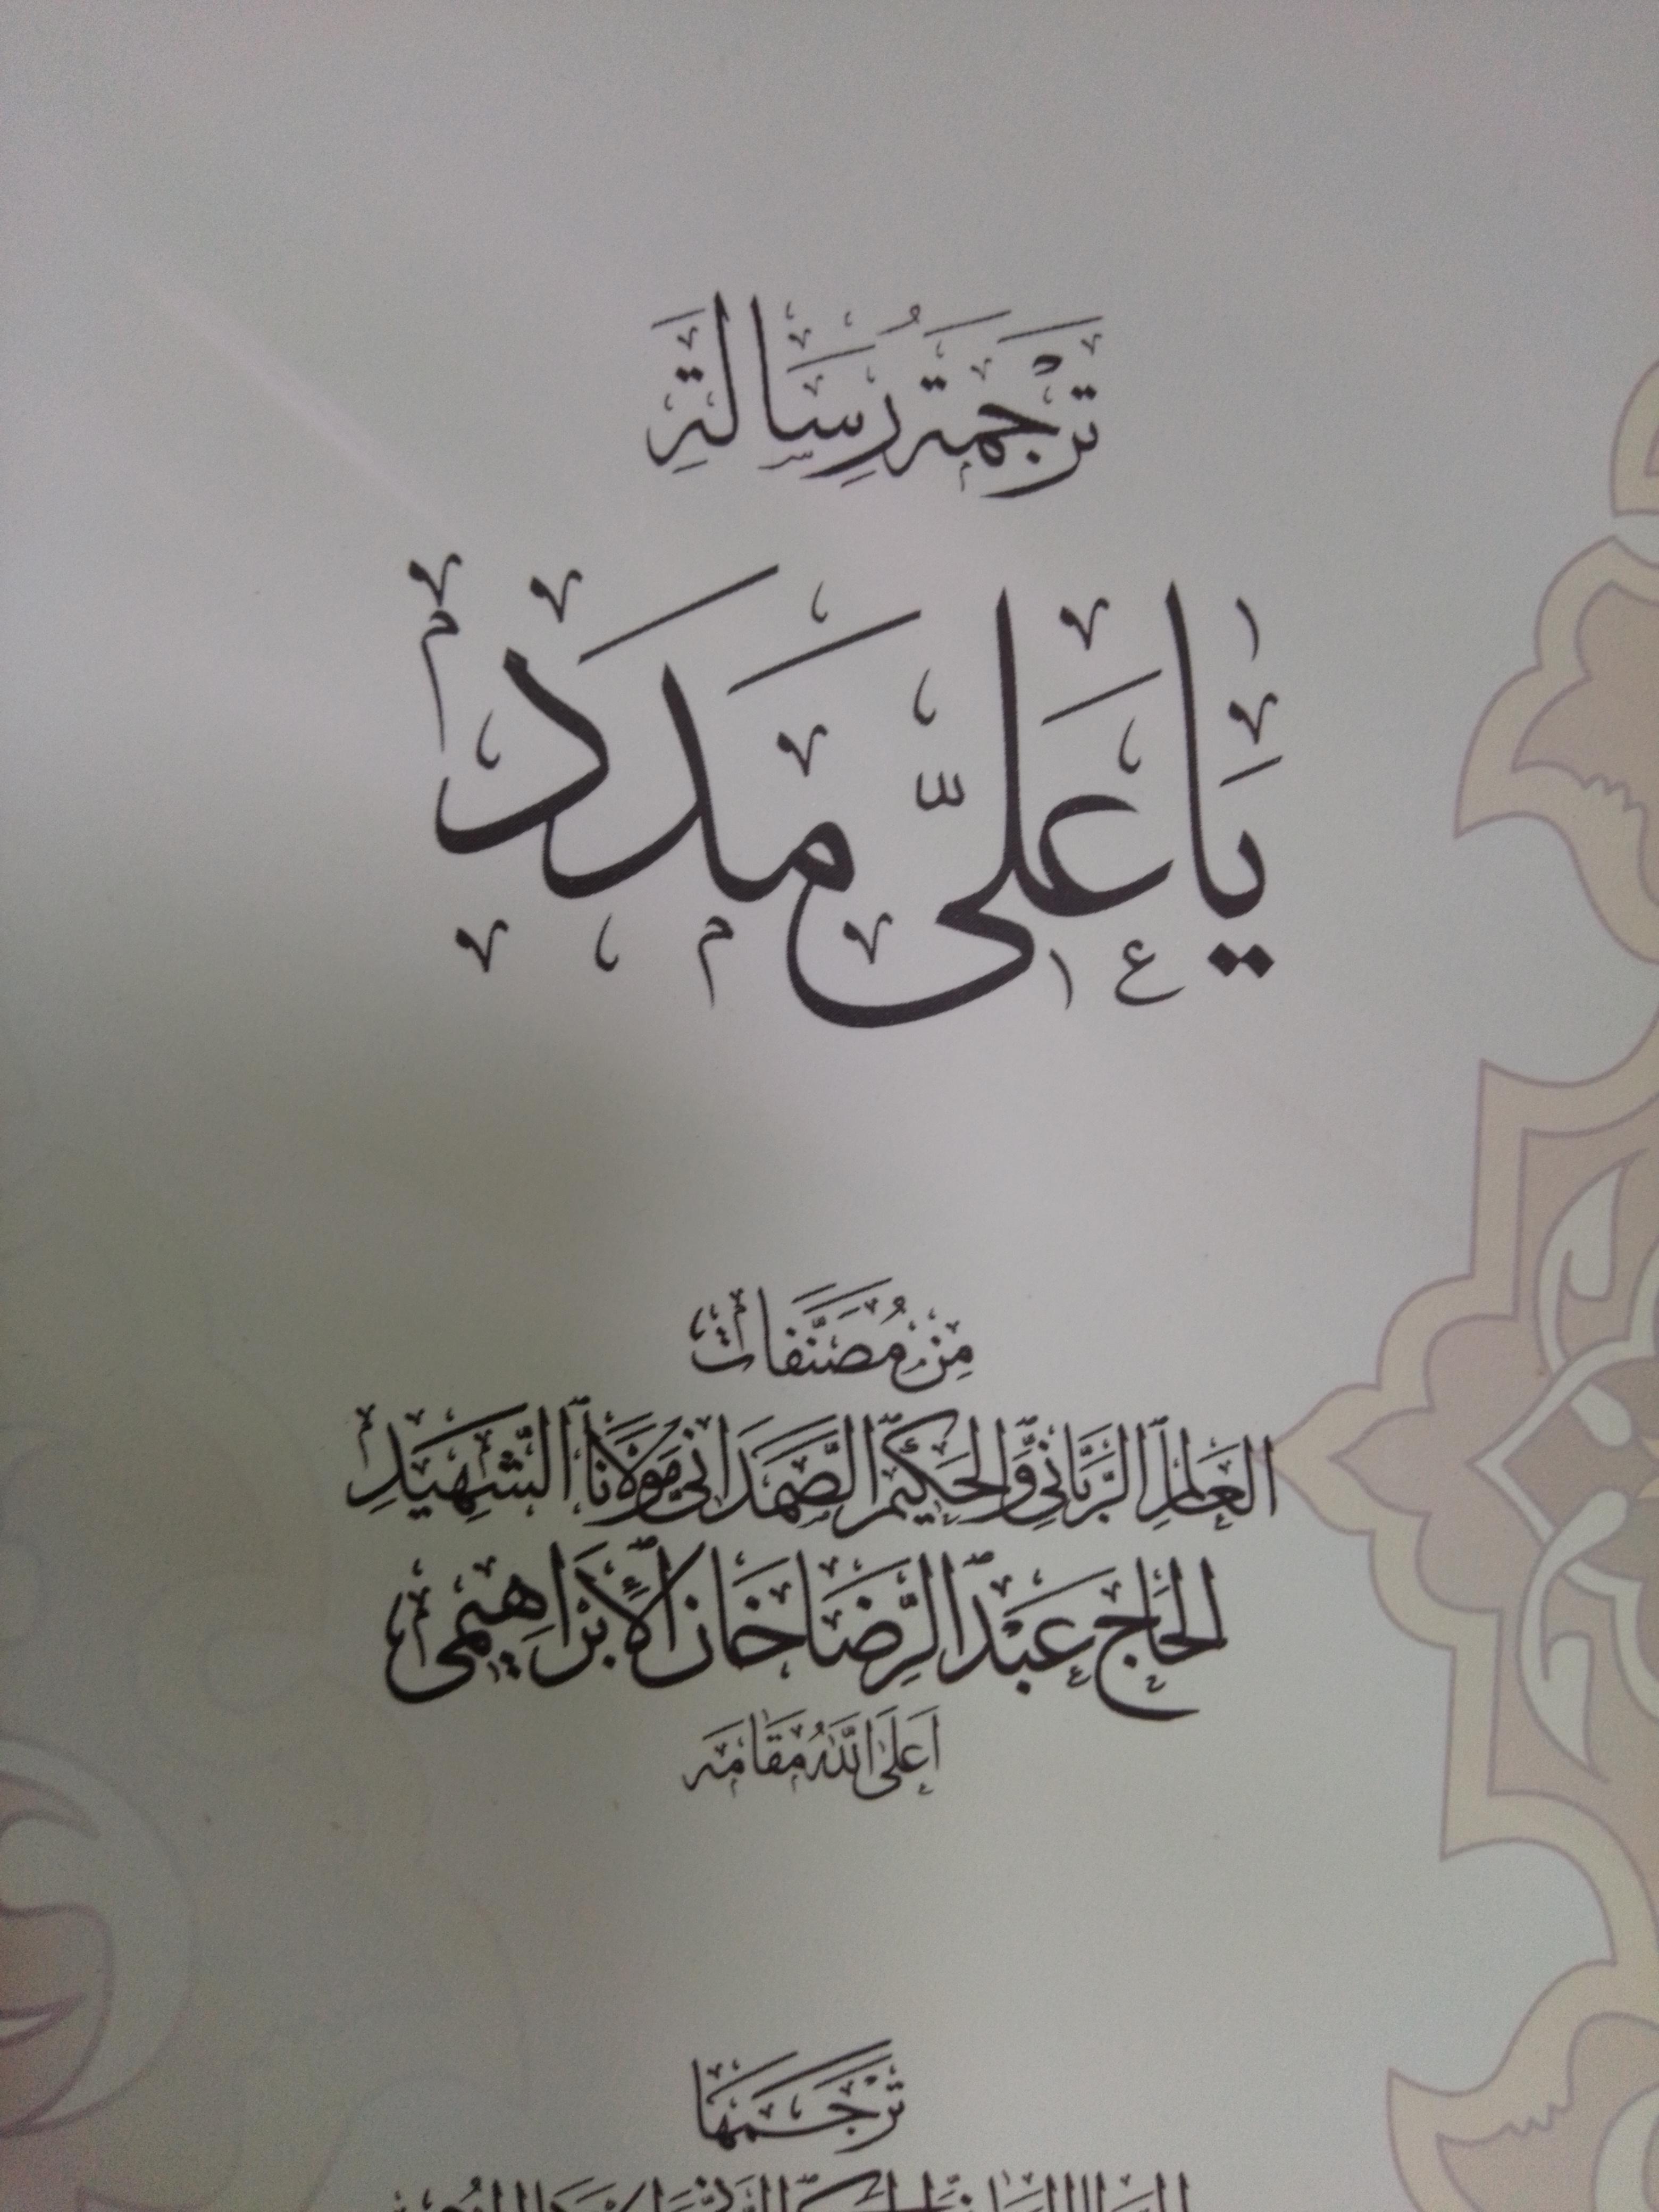 تَرْجَمَةُ رِسَالَةِ
يَا عَلِيّ مَدَد
مِنْ مُصَنَّفَاتِ
العَالِمِ الرَّبَّانِيِّ وَالحَكِيمِ الصَّمَدَانِي مَوْلَانَا الشَّهِيدِ
الحَاج عَبْدالرِّضَا خَان الْإِبْرَاهِيمِي
اَعْلَى اللّٰهُ مَقَامَه
تَرْجَمَهَا